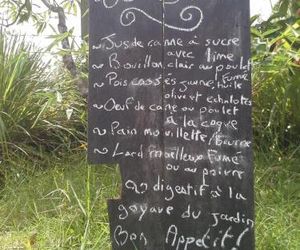 ~ Jus de canne à sucre
avec lime
~ Bouillon clair au poulet
fumé
~ Pois cassés jaune, huile
olive et échalotes
~ Oeuf de cane ou poulet
à la coque
~ Pain mouillette/beurre
~ Lard moelleux fumé
ou au poivre
~ digestif à la
goyave du jardin
Bon Appétit!